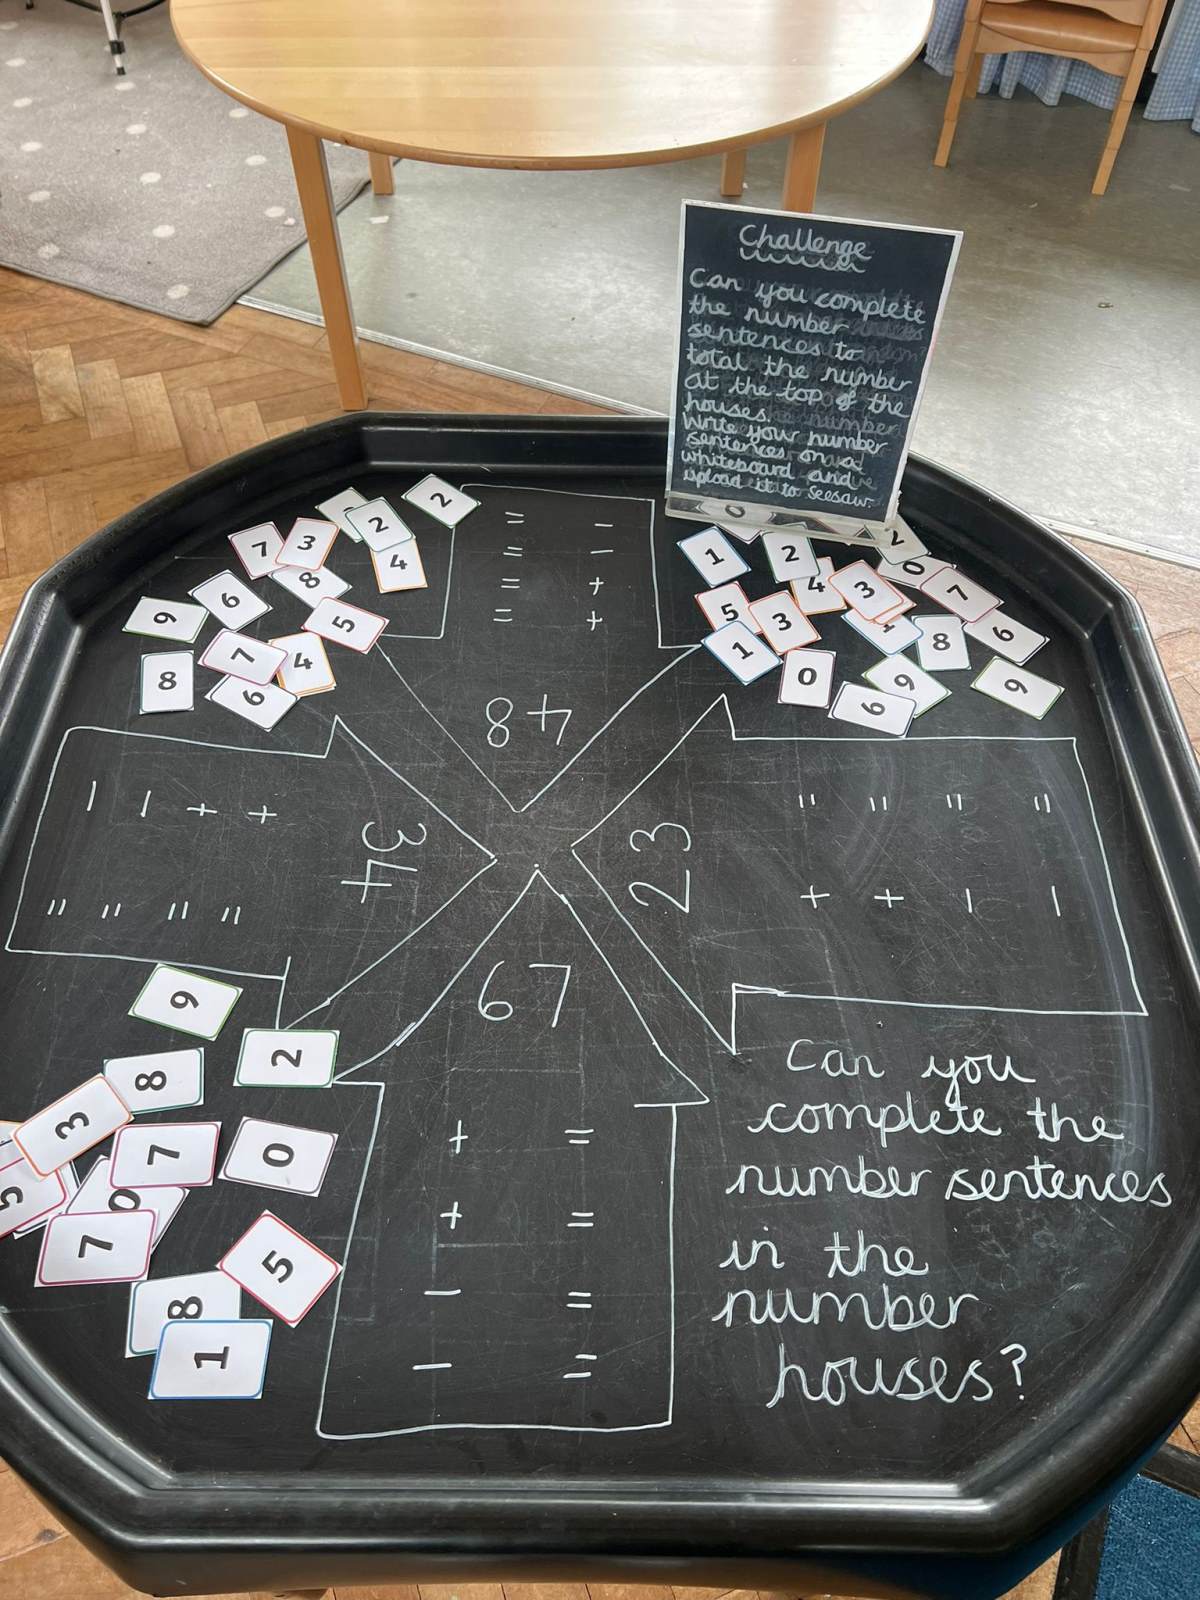 Challenge
Can you complete
the number
sentences to
total the number
at the top of the
houses.
Write your number
sentences on a
whiteboard and
upload it to Seesaw.
2
2
7
3
4
8
6
9
5
7
4
8
6
= -
= -
= +
= +
48
1
2
2
0
4
3
7
5
3
1
8
6
1
0
9
9
6
43
- - + +
= = = =
23
= = = =
+ + - -
67
+ =
+ =
- =
- =
9
2
8
3
7
0
5
0
7
5
8
1
Can you
complete the
number sentences
in the
number
houses?